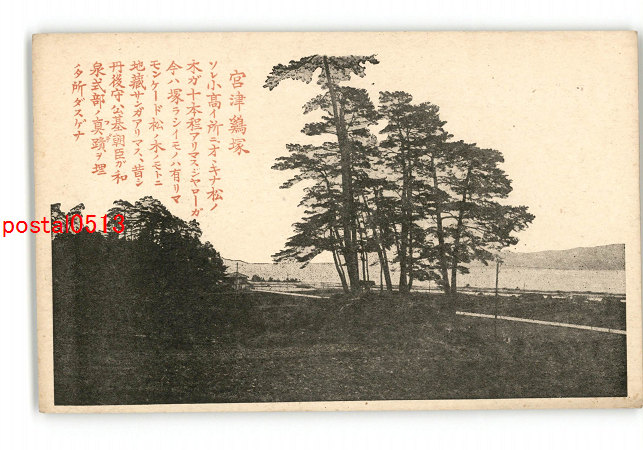 宮津鷄塚
ソレ小高イ所ニオヽキナ松ノ
木ガ十本程アリマスジヤローガ
今ハ塚ラシイモノハ有リマ
モンケード松ノ木ノモトニ
地藏サンガアリマス、昔シ
丹後守公基朝臣ガ和
泉式部ノ眞蹟ヲ埋
メタ所ダスゲナ
postal0513